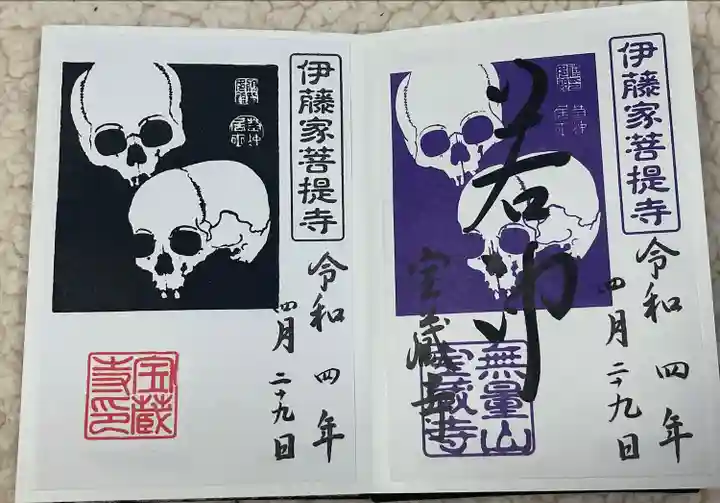 伊藤家菩提寺
令和四年
四月二十九日
宝蔵寺印
伊藤家菩提寺
若冲
令和四年
四月二十九日
宝蔵寺
無量山
宝蔵寺